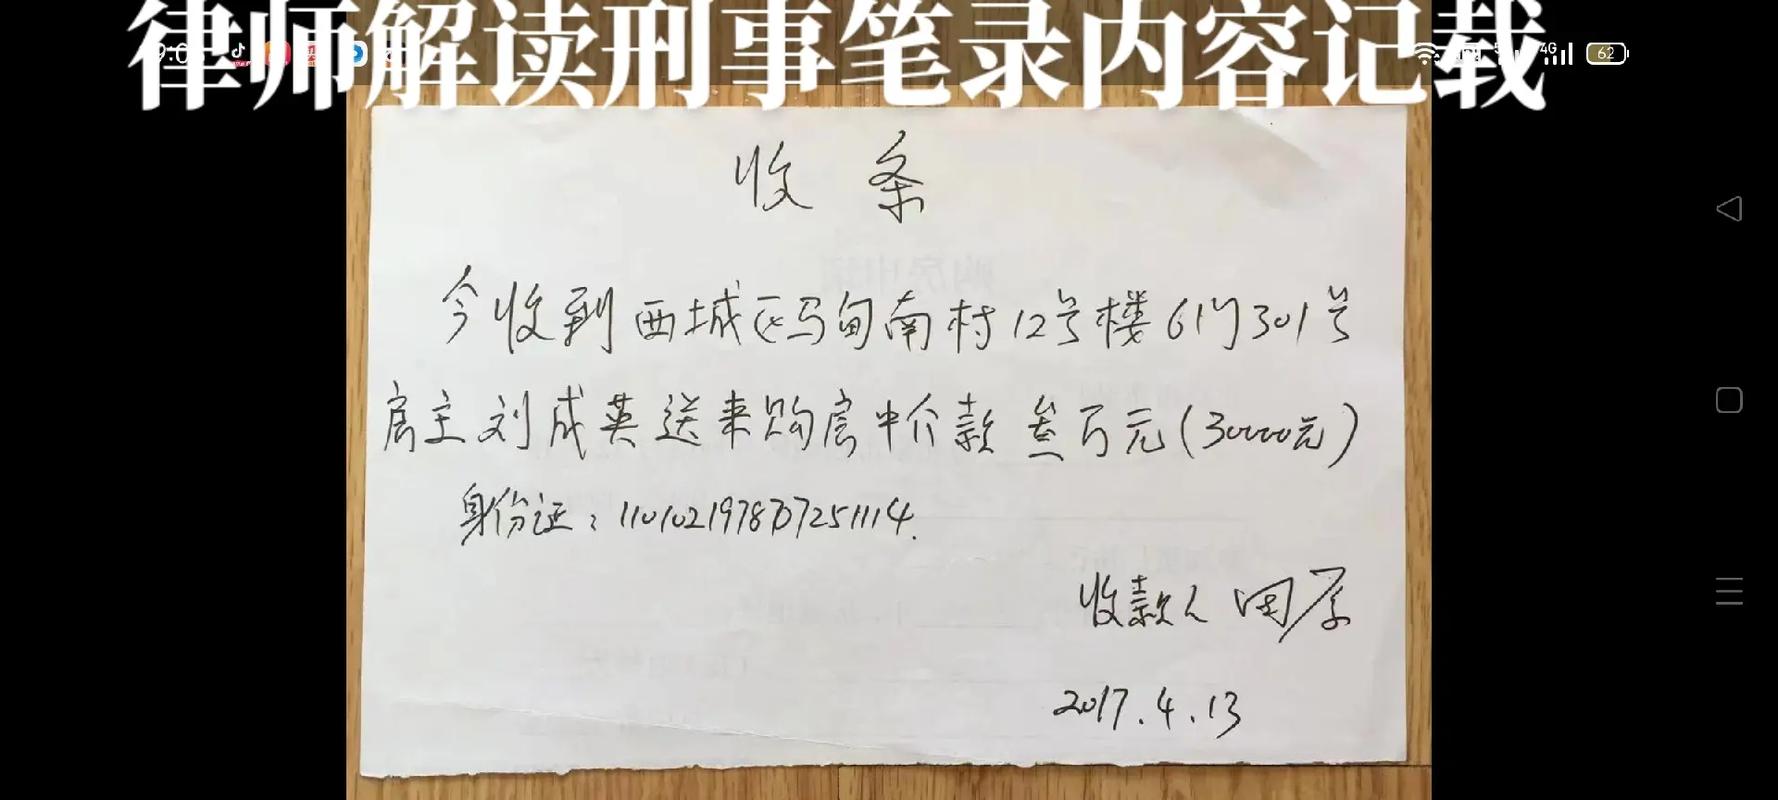 律师解读刑事笔录内容记载
62
收条
今收到西城区马甸南村12号楼6门301号
房主刘成英送来购房中介款叁万元(30000元)
身份证:110102197807251114.
收款人
2017.4.13